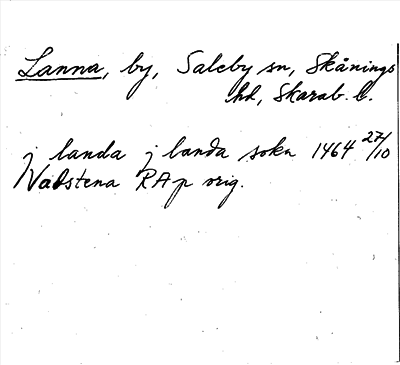 Lanna, by, Saleby sn, Skånings
hd, Skarab. l.
j landa j landa sokn 1464 27/10
Vadstena RAp orig.